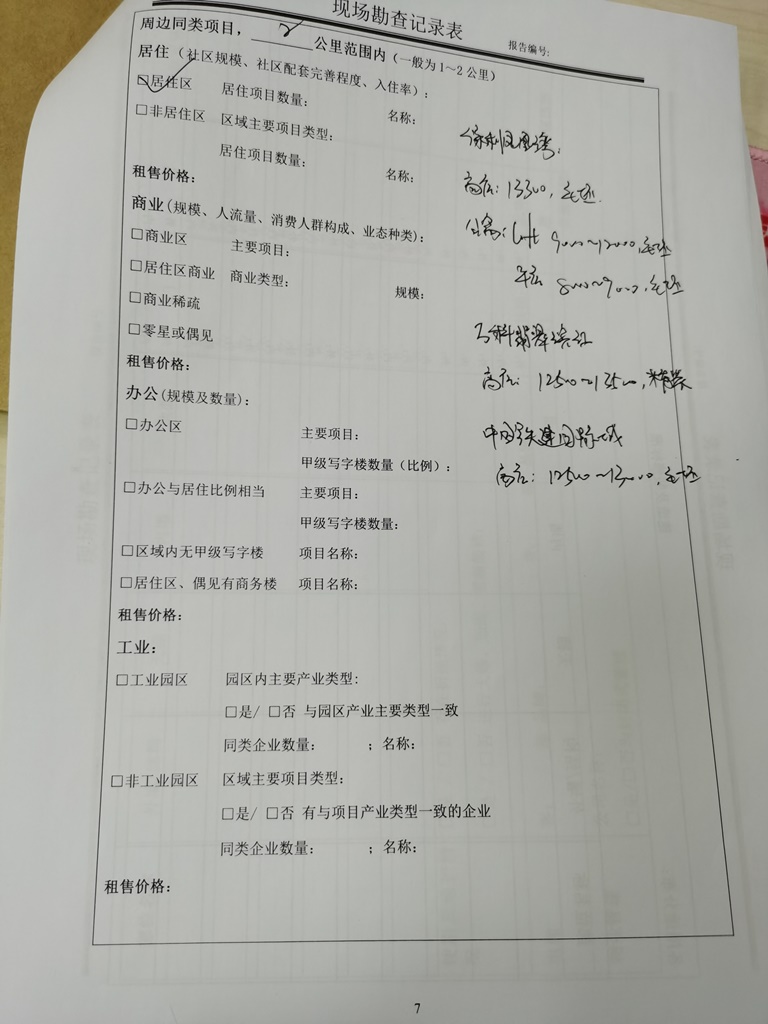 现场勘查记录表
报告编号:
周边同类项目, 2 公里范围内 (一般为1～2公里)
居住 (社区规模、社区配套完善程度、入住率):
☑居住区 居住项目数量: 名称:
□非居住区 区域主要项目类型:
保利凤凰湾:
居住项目数量: 名称:
租售价格:
高层: 13300, 毛坯.
商业(规模、人流量、消费人群构成、业态种类):
公寓: loft 9000～12000, 毛坯
□商业区 主要项目:
平层 8000～9000, 毛坯
□居住区商业 商业类型: 规模:
□商业稀疏
万科翡翠滨江
□零星或偶见
租售价格:
高层: 12500～13500, 精装
办公(规模及数量):
□办公区 主要项目:
中国铁建国际城
甲级写字楼数量(比例):
高层: 12500～13000, 毛坯
□办公与居住比例相当 主要项目:
甲级写字楼数量:
□区域内无甲级写字楼 项目名称:
□居住区、偶见有商务楼 项目名称:
租售价格:
工业:
□工业园区 园区内主要产业类型:
□是/ □否 与园区产业主要类型一致
同类企业数量: ; 名称:
□非工业园区 区域主要项目类型:
□是/ □否 有与项目产业类型一致的企业
同类企业数量: ; 名称:
租售价格:
7